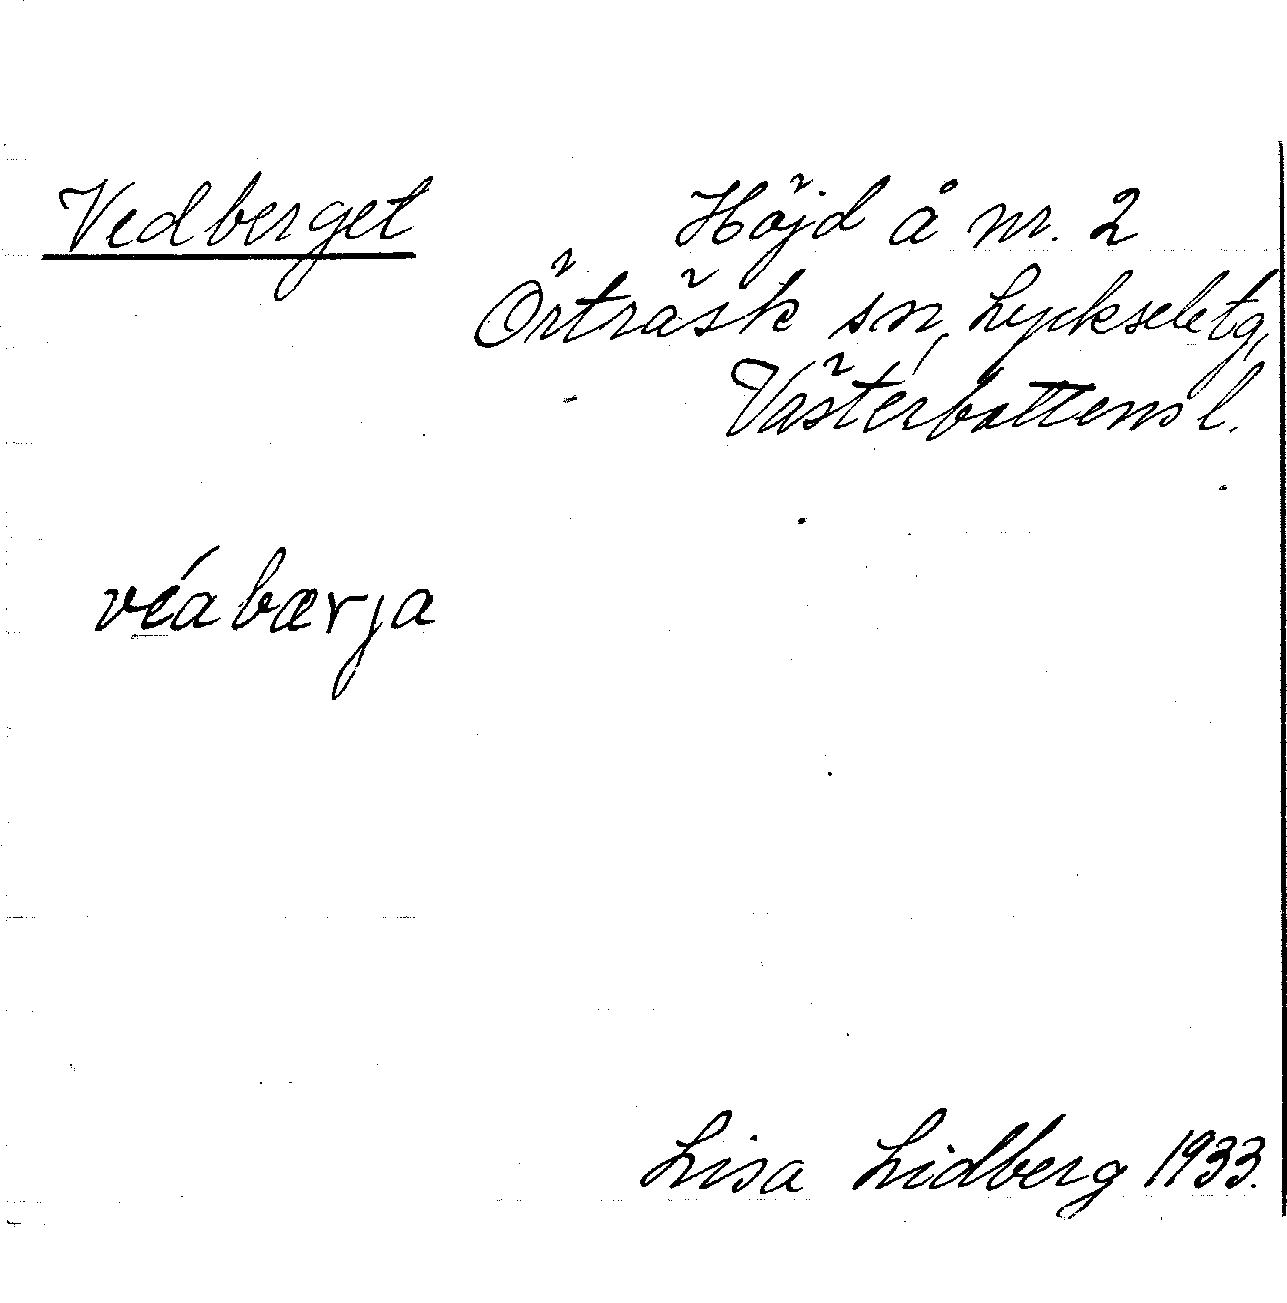 Vedberget
Höjd å nr. 2
Örträsk sn, Lycksele tg,
Västerbottens l.
véabærja
Lisa Lidberg 1933.